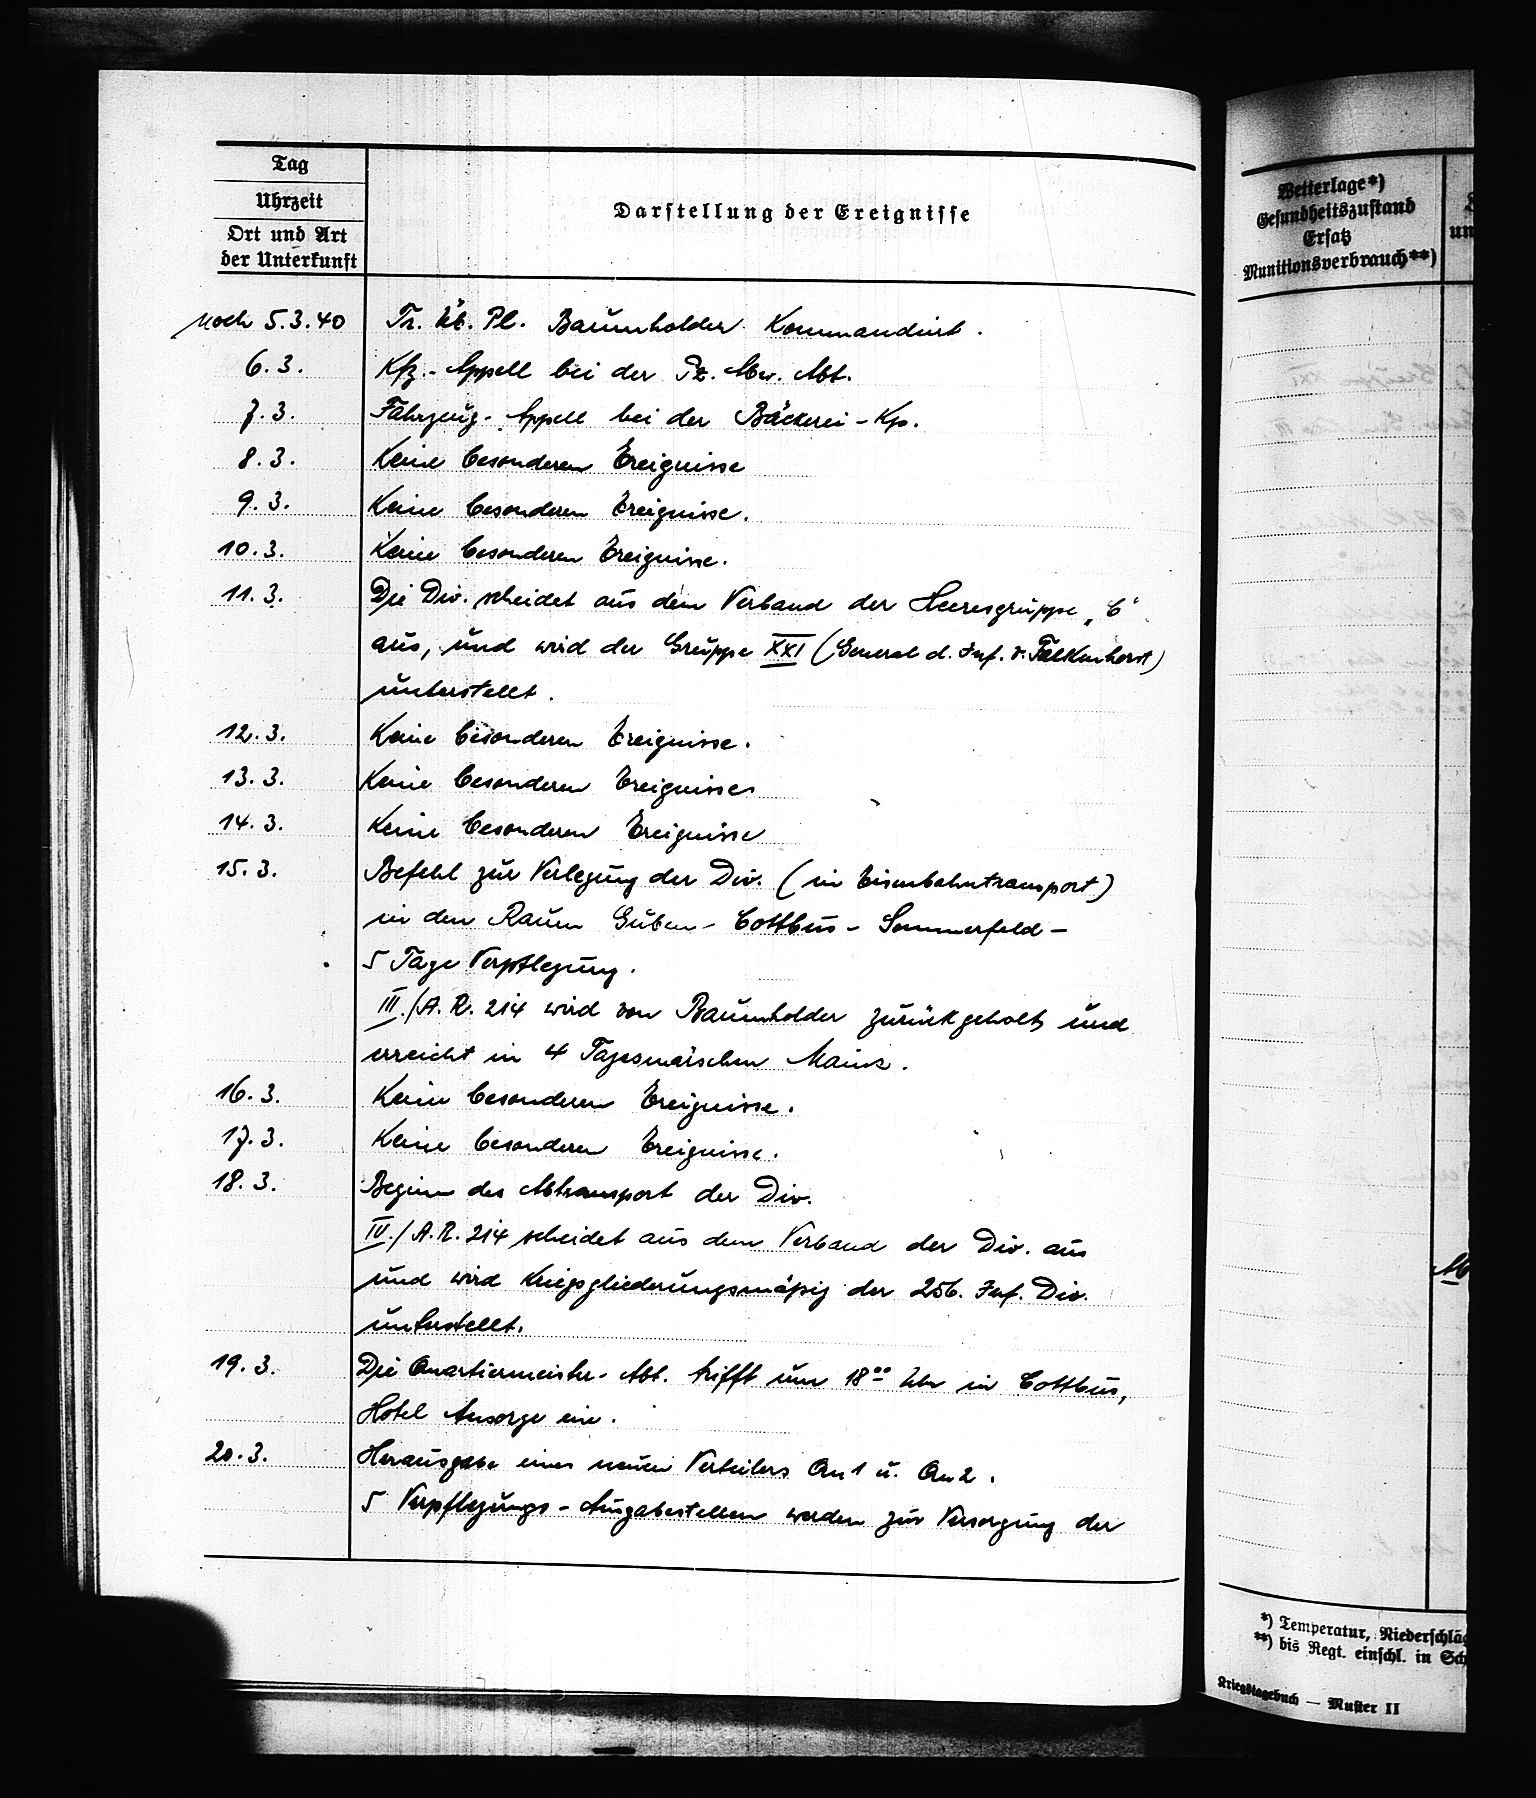 Tag
Uhrzeit
Ort und Art
der Unterkunft
Darstellung der Ereignisse
noch 5.3.40 Tr. Üb. Pl. Baumholder kommandiert.
6.3. Kfz.-Appell bei der Pz. Abw. Abt.
7.3. Fahrzeug-Appell bei der Bäckerei-Kp.
8.3. Keine besonderen Ereignisse
9.3. Keine besonderen Ereignisse.
10.3. Keine besonderen Ereignisse.
11.3. Die Div. scheidet aus dem Verband der Heeresgruppe „C“
aus, und wird der Gruppe XXI (General d. Inf. v. Falkenhorst)
unterstellt.
12.3. Keine besonderen Ereignisse.
13.3. Keine besonderen Ereignisse
14.3. Keine besonderen Ereignisse
15.3. Befehl zur Verlegung der Div. (im Eisenbahntransport)
in den Raum Guben - Cottbus - Sommerfeld -
5 Tage Verpflegung.
III./A.R. 214 wird von Baumholder zurückgeholt und
erreicht in 4 Tagesmärschen Mainz.
16.3. Keine besonderen Ereignisse.
17.3. Keine besonderen Ereignisse.
18.3. Beginn des Abtransport der Div.
IV./A.R. 214 scheidet aus dem Verband der Div. aus
und wird kriegsgliederungsmäßig der 256. Inf. Div.
unterstellt.
19.3. Die Quartiermeister-Abt. trifft um 18⁰⁰ Uhr in Cottbus,
Hotel Ansorge ein.
20.3. Herausgabe eines neuen Verteilers Qu 1 u. Qu 2.
5 Verpflegungs-Ausgabestellen werden zur Versorgung der
Wetterlage*)
Gesundheitszustand
Ersatz
Munitionsverbrauch**)
un
*) Temperatur, Niederschläg
**) bis Regt. einschl. in Sch
Kriegstagebuch — Muster II